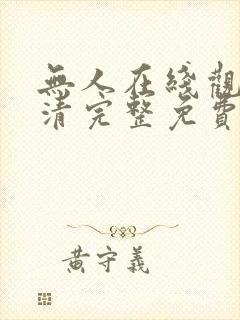 無人在綫觀
清完整免費
黃守義